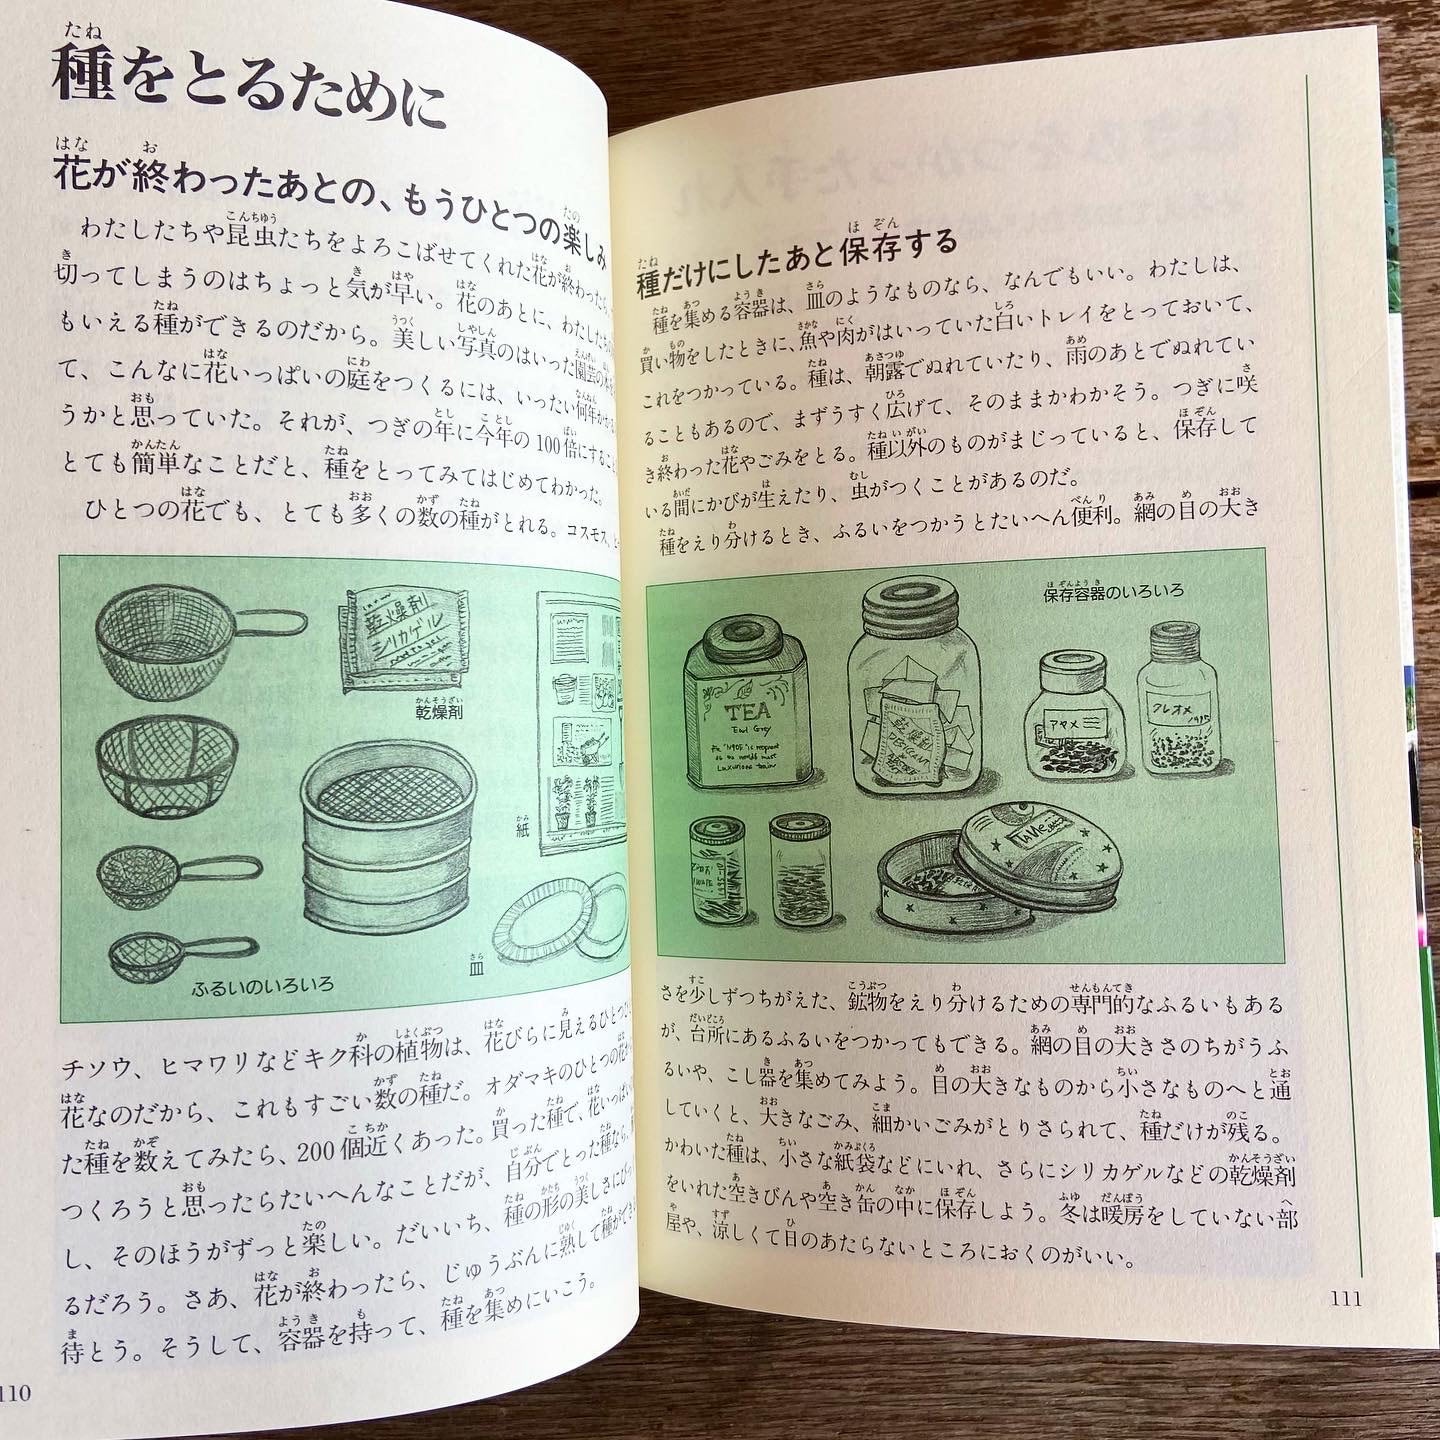 種をとるために
花が終わったあとの、もうひとつの楽しみ
わたしたちや昆虫たちをよろこばせてくれた花が終わったら、
切ってしまうのはちょっと気が早い。花のあとに、わたしたちの
もいえる種ができるのだから。美しい写真のはいった園芸の
て、こんなに花いっぱいの庭をつくるには、いったい何年か
うかと思っていた。それが、つぎの年に今年の100倍にする
とても簡単なことだと、種をとってみてはじめてわかった。
ひとつの花でも、とても多くの数の種がとれる。コスモス、
乾燥剤
シリカゲル
乾燥剤
紙
皿
ふるいのいろいろ
チソウ、ヒマワリなどキク科の植物は、花びらに見えるひとつ
花なのだから、これもすごい数の種だ。オダマキのひとつの花
た種を数えてみたら、200個近くあった。買った種で、花いっぱい
つくろうと思ったらたいへんなことだが、自分でとった種なら、
し、そのほうがずっと楽しい。だいいち、種の形の美しさにびっ
るだろう。さあ、花が終わったら、じゅうぶんに熟して種ができ
待とう。そうして、容器を持って、種を集めにいこう。
110
種だけにしたあと保存する
種を集める容器は、皿のようなものなら、なんでもいい。わたしは、
買い物をしたときに、魚や肉がはいっていた白いトレイをとっておいて、
これをつかっている。種は、朝露でぬれていたり、雨のあとでぬれてい
ることもあるので、まずうすく広げて、そのままかわかそう。つぎに咲
き終わった花やごみをとる。種以外のものがまじっていると、保存して
いる間にかびが生えたり、虫がつくことがあるのだ。
種をえり分けるとき、ふるいをつかうとたいへん便利。網の目の大き
保存容器のいろいろ
TEA
Earl Grey
乾燥剤
アヤメ
クレオメ
1995
さを少しずつちがえた、鉱物をえり分けるための専門的なふるいもある
が、台所にあるふるいをつかってもできる。網の目の大きさのちがうふ
るいや、こし器を集めてみよう。目の大きなものから小さなものへと通
していくと、大きなごみ、細かいごみがとりさられて、種だけが残る。
かわいた種は、小さな紙袋などにいれ、さらにシリカゲルなどの乾燥剤
をいれた空きびんや空き缶の中に保存しよう。冬は暖房をしていない部
屋や、涼しくて日のあたらないところにおくのがいい。
111